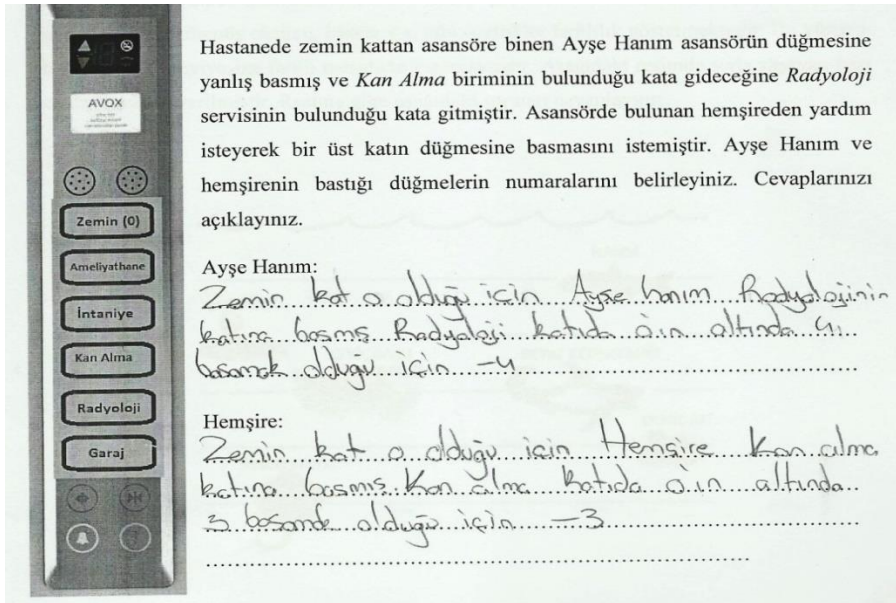 AVOX
Zemin (0)
Ameliyathane
İntaniye
Kan Alma
Radyoloji
Garaj
Hastanede zemin kattan asansöre binen Ayşe Hanım asansörün düğmesine
yanlış basmış ve Kan Alma biriminin bulunduğu kata gideceğine Radyoloji
servisinin bulunduğu kata gitmiştir. Asansörde bulunan hemşireden yardım
isteyerek bir üst katın düğmesine basmasını istemiştir. Ayşe Hanım ve
hemşirenin bastığı düğmelerin numaralarını belirleyiniz. Cevaplarınızı
açıklayınız.
Ayşe Hanım:
Zemin kat 0 olduğu için Ayşe hanım Radyolojinin
katına basmış Radyoloji katıda 0'ın altında 4.
basamak olduğu için -4
Hemşire:
Zemin kat 0 olduğu için Hemşire Kan alma
katına basmış Kan alma katıda 0.ın altında
3 basamak olduğu için -3